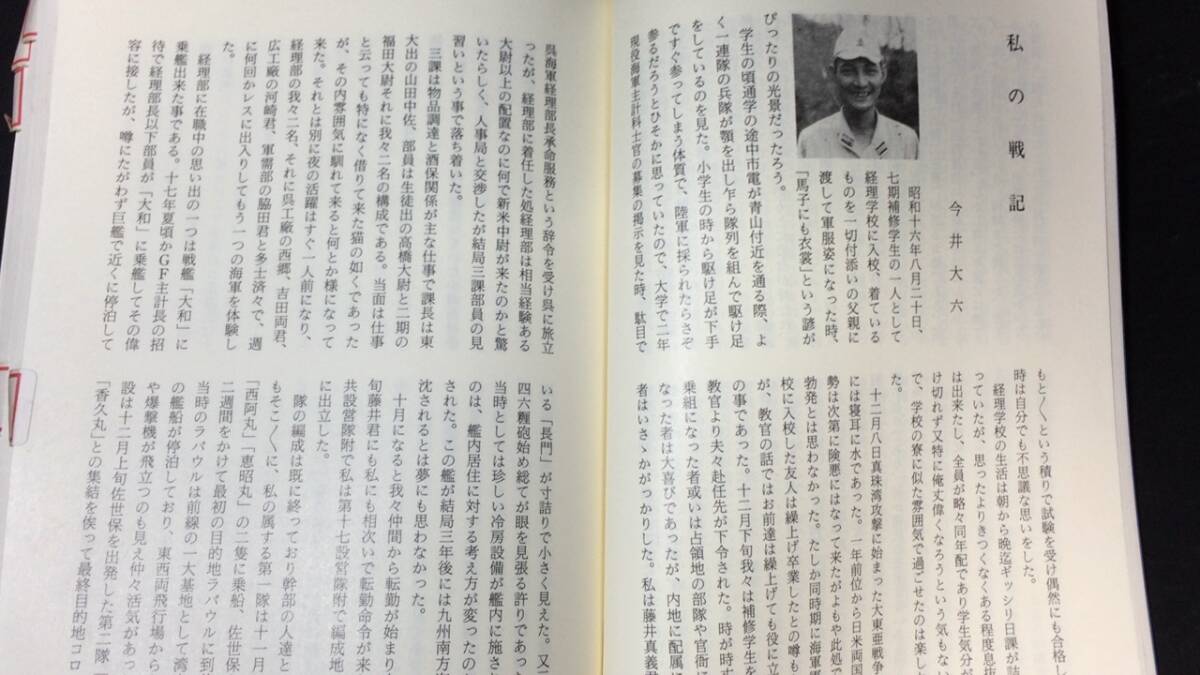 私の戦記
今井大六
昭和十六年八月二十日、
七期補修学生の一人として
経理学校に入校、着ている
ものを一切付添いの父親に
渡して軍服姿になった時、
「馬子にも衣裳」という諺が
ぴったりの光景だったろう。
学生の頃通学の途中市電が青山付近を通る際、よ
く一連隊の兵隊が顎を出し乍ら隊列を組んで駆け足
をしているのを見た。小学生の時から駆け足が下手
ですぐ参ってしまう体質で、陸軍に採られたらさぞ
参るだろうとひそかに思っていたので、大学で二年
現役海軍主計科士官の募集の掲示を見た時、駄目で
もと〳〵という積りで試験を受け偶然にも合格し
時は自分でも不思議な思いをした。
経理学校の生活は朝から晩迄ギッシリ日課が詰
っていたが、思ったよりきつくなくある程度息抜
は出来たし、全員が略々同年配であり学生気分が
け切れず又特に俺丈偉くなろうという気もない
で、学校の寮に似た雰囲気で過ごせたのは楽し
た。
十二月八日真珠湾攻撃に始まった大東亜戦争
には寝耳に水であった。一年前位から日米両国
勢は次第に険悪にはなって来たがよもや此処で
勃発とは思わなかった。たしか同時期に海軍
校に入校した友人は繰上げ卒業したとの噂も
が、教官の話ではお前達は繰上げても役に立
の事であった。十二月下旬我々は補修学生を
教官より夫々赴任先が下令された。時が時
乗組になった者或いは占領地の部隊や官衙
なった者は大喜びであったが、内地に配属
者はいさゝかがっかりした。私は藤井真義君
呉海軍経理部長承命服務という辞令を受け呉に旅立
ったが、経理部に着任した処経理部は相当経験ある
大尉以上の配置なのに何で新米中尉が来たのかと驚
いたらしく、人事局と交渉したが結局三課部員の見
習いという事で落ち着いた。
三課は物品調達と酒保関係が主な仕事で課長は東
大出の山田中佐、部員は生徒出の高橋大尉と二期の
福田大尉それに我々二名の構成である。当面は仕事
と云っても特になく借りて来た猫の如くであった
が、その内雰囲気に馴れて来ると何とか様になって
来た。それとは別に夜の活躍はすぐ一人前になり、
経理部の我々二名、それに呉工廠の西郷、吉田両君、
広工廠の河崎君、軍需部の脇田君と多士済々で、週
に何回かレスに出入りしてもう一つの海軍を体験し
た。
経理部に在職中の思い出の一つは戦艦「大和」に
乗艦出来た事である。十七年夏頃かGF主計長の招
待で経理部長以下部員が「大和」に乗艦してその偉
容に接したが、噂にたがわず巨艦で近くに停泊して
いる「長門」が寸詰りで小さく見えた。又
四六糎砲始め総てが眼を見張る許りであっ
当時としては珍しい冷房設備が艦内に施さ
のは、艦内居住に対する考え方が変ったの
された。この艦が結局三年後には九州南方
沈されるとは夢にも思わなかった。
十月になると我々仲間から転勤が始まり
旬藤井君にも私にも相次いで転勤命令が来
共設営隊附で私は第十七設営隊附で編成地
に出立した。
隊の編成は既に終っており幹部の人達と
もそこ〳〵に、私の属する第一隊は十一月
「西阿丸」「恵昭丸」の二隻に乗船、佐世保
二週間をかけて最初の目的地ラバウルに到
当時のラバウルは前線の一大基地として湾
の艦船が停泊しており、東西両飛行場から
や爆撃機が飛立つのも見え仲々活気があっ
設は十二月上旬佐世保を出発した第二隊
「香久丸」との集結を俟って最終目的地コロ